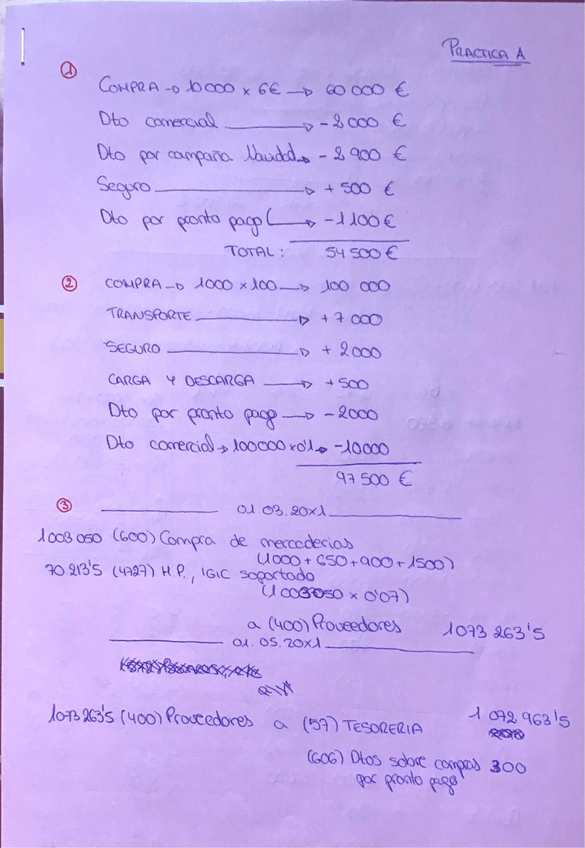 PRACTICA A
①
COMPRA → 10000 x 6€ → 60 000 €
Dto comercial → -2000 €
Dto por campaña Navidad → -2900 €
Seguro → +500 €
Dto por pronto pago → -1100€
TOTAL: 54 500 €
② COMPRA → 1000 x 100 → 100 000
TRANSPORTE → +7 000
SEGURO → +2000
CARGA Y DESCARGA → +500
Dto por pronto pago → -2000
Dto comercial → 100000 x 0'1 → -10000
97 500 €
③ 01.03.20x1
1003 050 (600) Compra de mercaderias
(1000 + 650 + 900 + 1500)
70 213'5 (4727) H.P., IGIC soportado
(1 003050 x 0'07)
a (400) Proveedores 1073 263'5
01.05.20x1
1073 263'5 (400) Proveedores a (57) TESORERIA 1 072 963'5
(606) Dtos sobre compras 300
por pronto pago